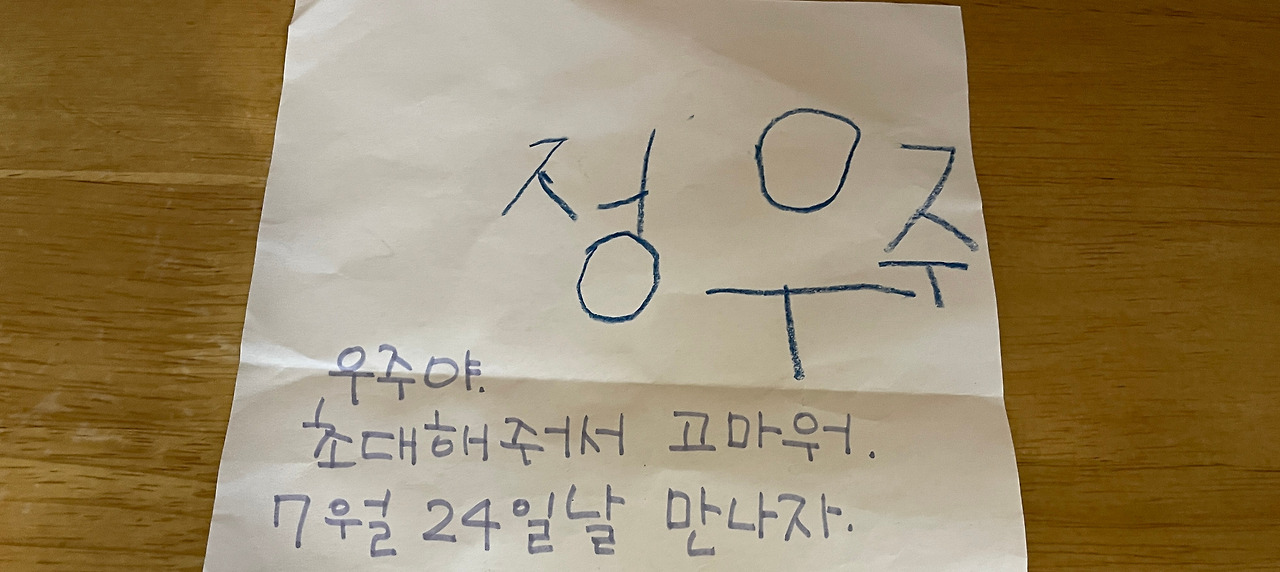 정우주
우주야.
초대해주어서 고마워.
7월 24일날 만나자.